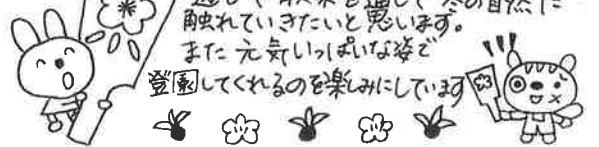 を通して冬の自然に
触れていきたいと思います。
また元気いっぱいな姿で
登園してくれるのを楽しみにしています